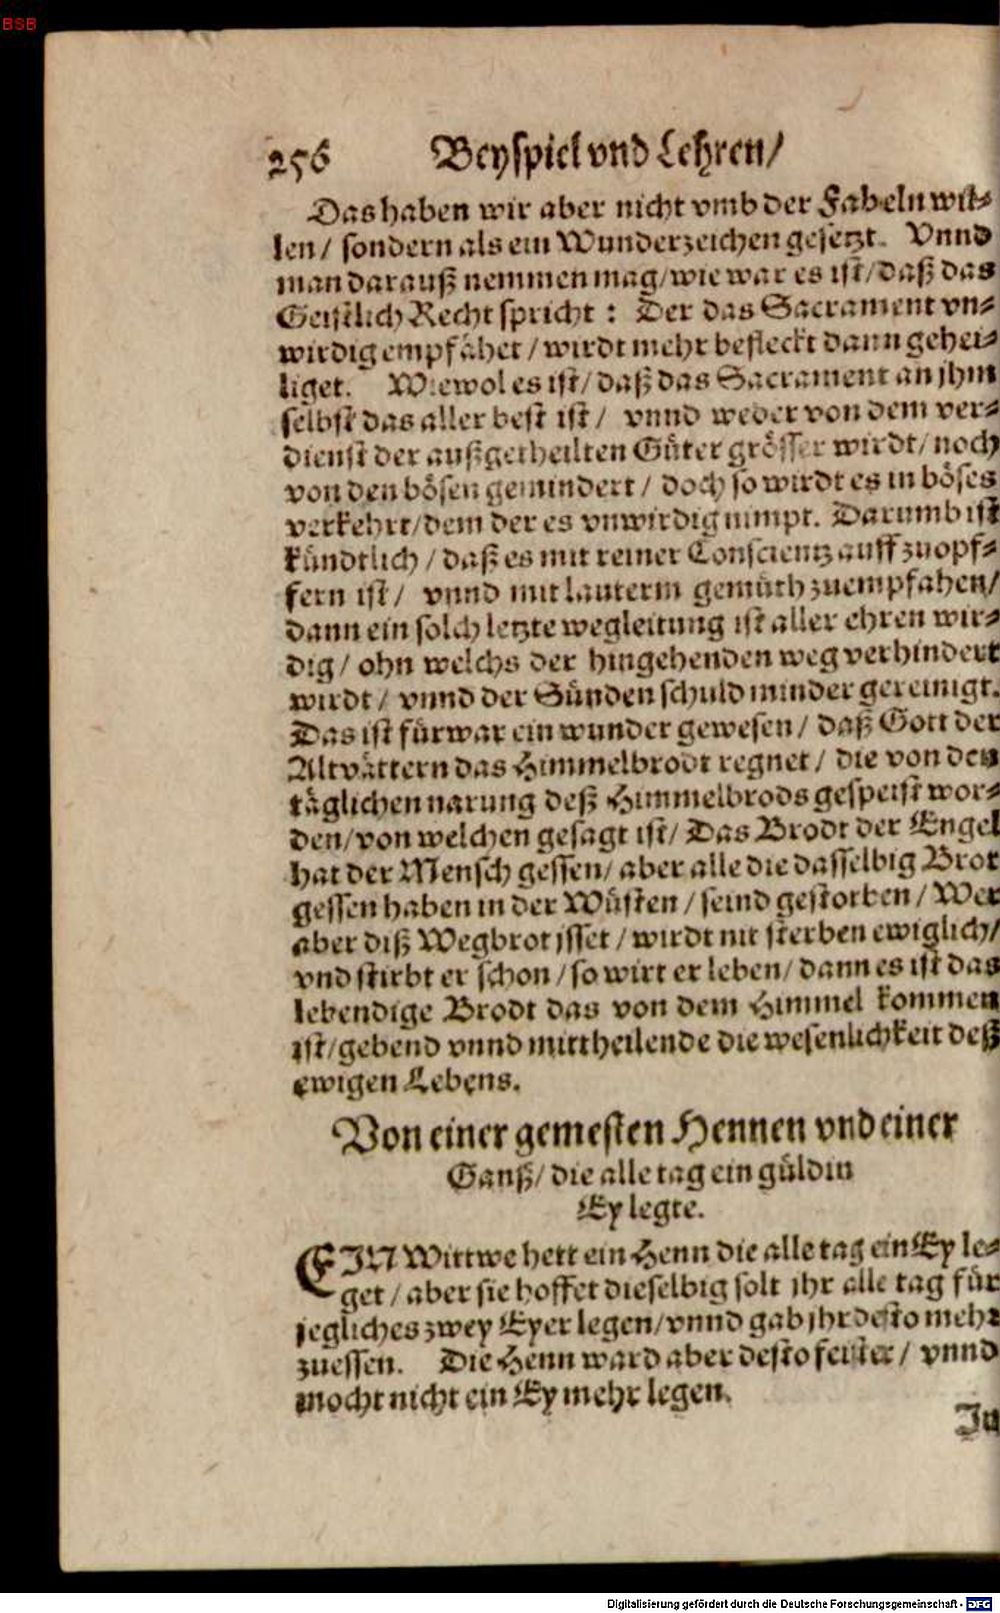 BSB
256 Beyspiel vnd Lehren/
Das haben wir aber nicht vmb der Fabeln wil⸗
len / sondern als ein Wunderzeichen gesetzt. Vnnd
man darauß nemmen mag/wie war es ist/daß das
Geistlich Recht spricht : Der das Sacrament vn⸗
wirdig empfähet / wirdt mehr befleckt dann gehei⸗
liget. Wiewol es ist/ daß das Sacrament an jhm
selbst das aller best ist / vnnd weder von dem ver⸗
dienst der außgetheilten Güter grösser wirdt/ noch
von den bösen gemindert / doch so wirdt es in böses
verkehrt/dem der es vnwirdig nimpt. Darumb ist
kündtlich / daß es mit reiner Conscientz auff zuopf⸗
fern ist / vnnd mit lauterm gemüth zuempfahen/
dann ein solch letzte wegleitung ist aller ehren wir⸗
dig / ohn welchs der hingehenden weg verhindert
wirdt / vnnd der Sünden schuld minder gereinigt.
Das ist fürwar ein wunder gewesen / daß Gott der
Altvättern das Himmelbrodt regnet / die von den
täglichen narung deß Himmelbrods gespeist wor⸗
den/von welchen gesagt ist/ Das Brodt der Engel
hat der Mensch gessen/ aber alle die dasselbig Brot
gessen haben in der Wüsten / seind gestorben / Wer
aber diß Wegbrot jsset / wirdt nit sterben ewiglich/
vnd stirbt er schon / so wirt er leben/ dann es ist das
lebendige Brodt das von dem Himmel kommen
ist/gebend vnnd mittheilende die wesenlichkeit deß
ewigen Lebens.
Von einer gemesten Hennen vnd einer
Ganß/ die alle tag ein güldin
Ey legte.
EIN Wittwe hett ein Henn die alle tag ein Ey le⸗
get / aber sie hoffet dieselbig solt jhr alle tag für
jegliches zwey Eyer legen/vnnd gab jhr desto mehr
zuessen. Die Henn ward aber desto feister / vnnd
mocht nicht ein Ey mehr legen.
In
Digitalisierung gefördert durch die Deutsche Forschungsgemeinschaft - DFG